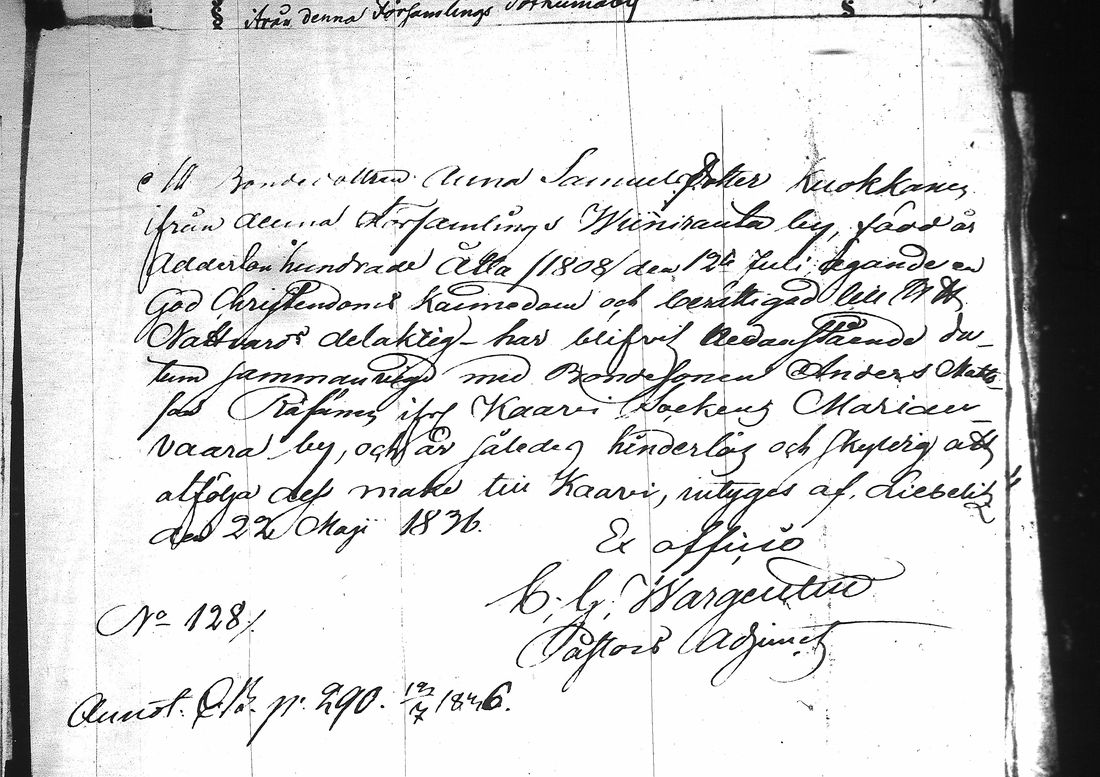 ifrån denna Församlings
Bondedottren Anna Samuels Dotter Kuokkanen
ifrån denna Församlings Wiiniranta by, född år
Adderton hundrade Åtta /1808/ den 12te Juli, ägande en
God Christendoms Kännedom och berättigad till H. H.
Nattvards delaktig- har blifvit nedanstående da-
tum sammanvigd med Bondesonen Anders Matts-
son Räsänen ifrå Kaavi Sockens Marian-
vaara by, och är således hinderlös och skyldig att
åtfölja dess make till Kaavi, intyges af. Liebelitz
den 22 Maji 1836.
Ex officio
C. G. Wargentin
Pastors Adjunct
No 128/.
Annot. p. 290. 19/7 1846.